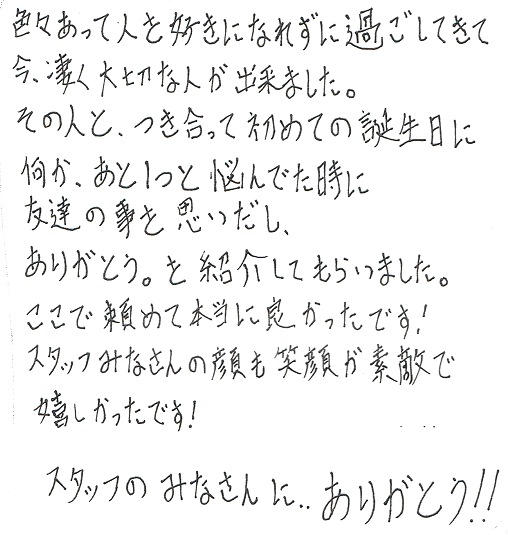 色々あって人を好きになれずに過ごしてきて
今、凄く大切な人が出来ました。
その人と、つき合って初めての誕生日に
何か、あと1つと悩んでた時に
友達の事を思いだし、
ありがとう。を紹介してもらいました。
ここで頼めて本当に良かったです!
スタッフみなさんの顔も笑顔が素敵で
嬉しかったです!
スタッフのみなさんに..ありがとう!!